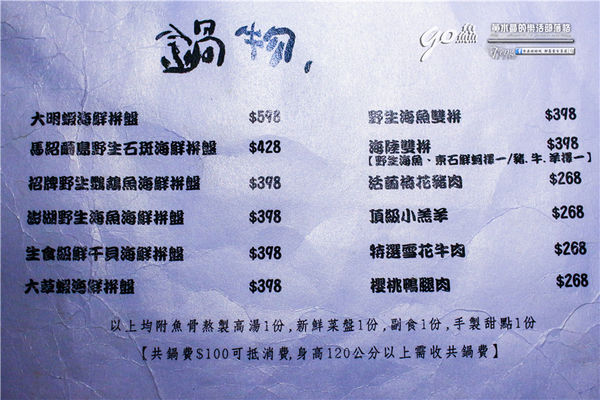 鍋物,
go
大明蝦海鮮拼盤 $598
馬紹爾島野生石斑海鮮拼盤 $428
招牌野生鸚鵡魚海鮮拼盤 $398
澎湖野生海魚海鮮拼盤 $398
生食級鮮干貝海鮮拼盤 $398
大草蝦海鮮拼盤 $398
野生海魚雙拼 $398
海陸雙拼 $398
【野生海魚、東石鮮蚵擇一/豬、牛、羊擇一】
活菌梅花豬肉 $268
頂級小羔羊 $268
特選雪花牛肉 $268
櫻桃鴨腿肉 $268
以上均附魚骨熬製高湯1份,新鮮菜盤1份,副食1份,手製甜點1份
【共鍋費$100可抵消費,身高120公分以上需收共鍋費】